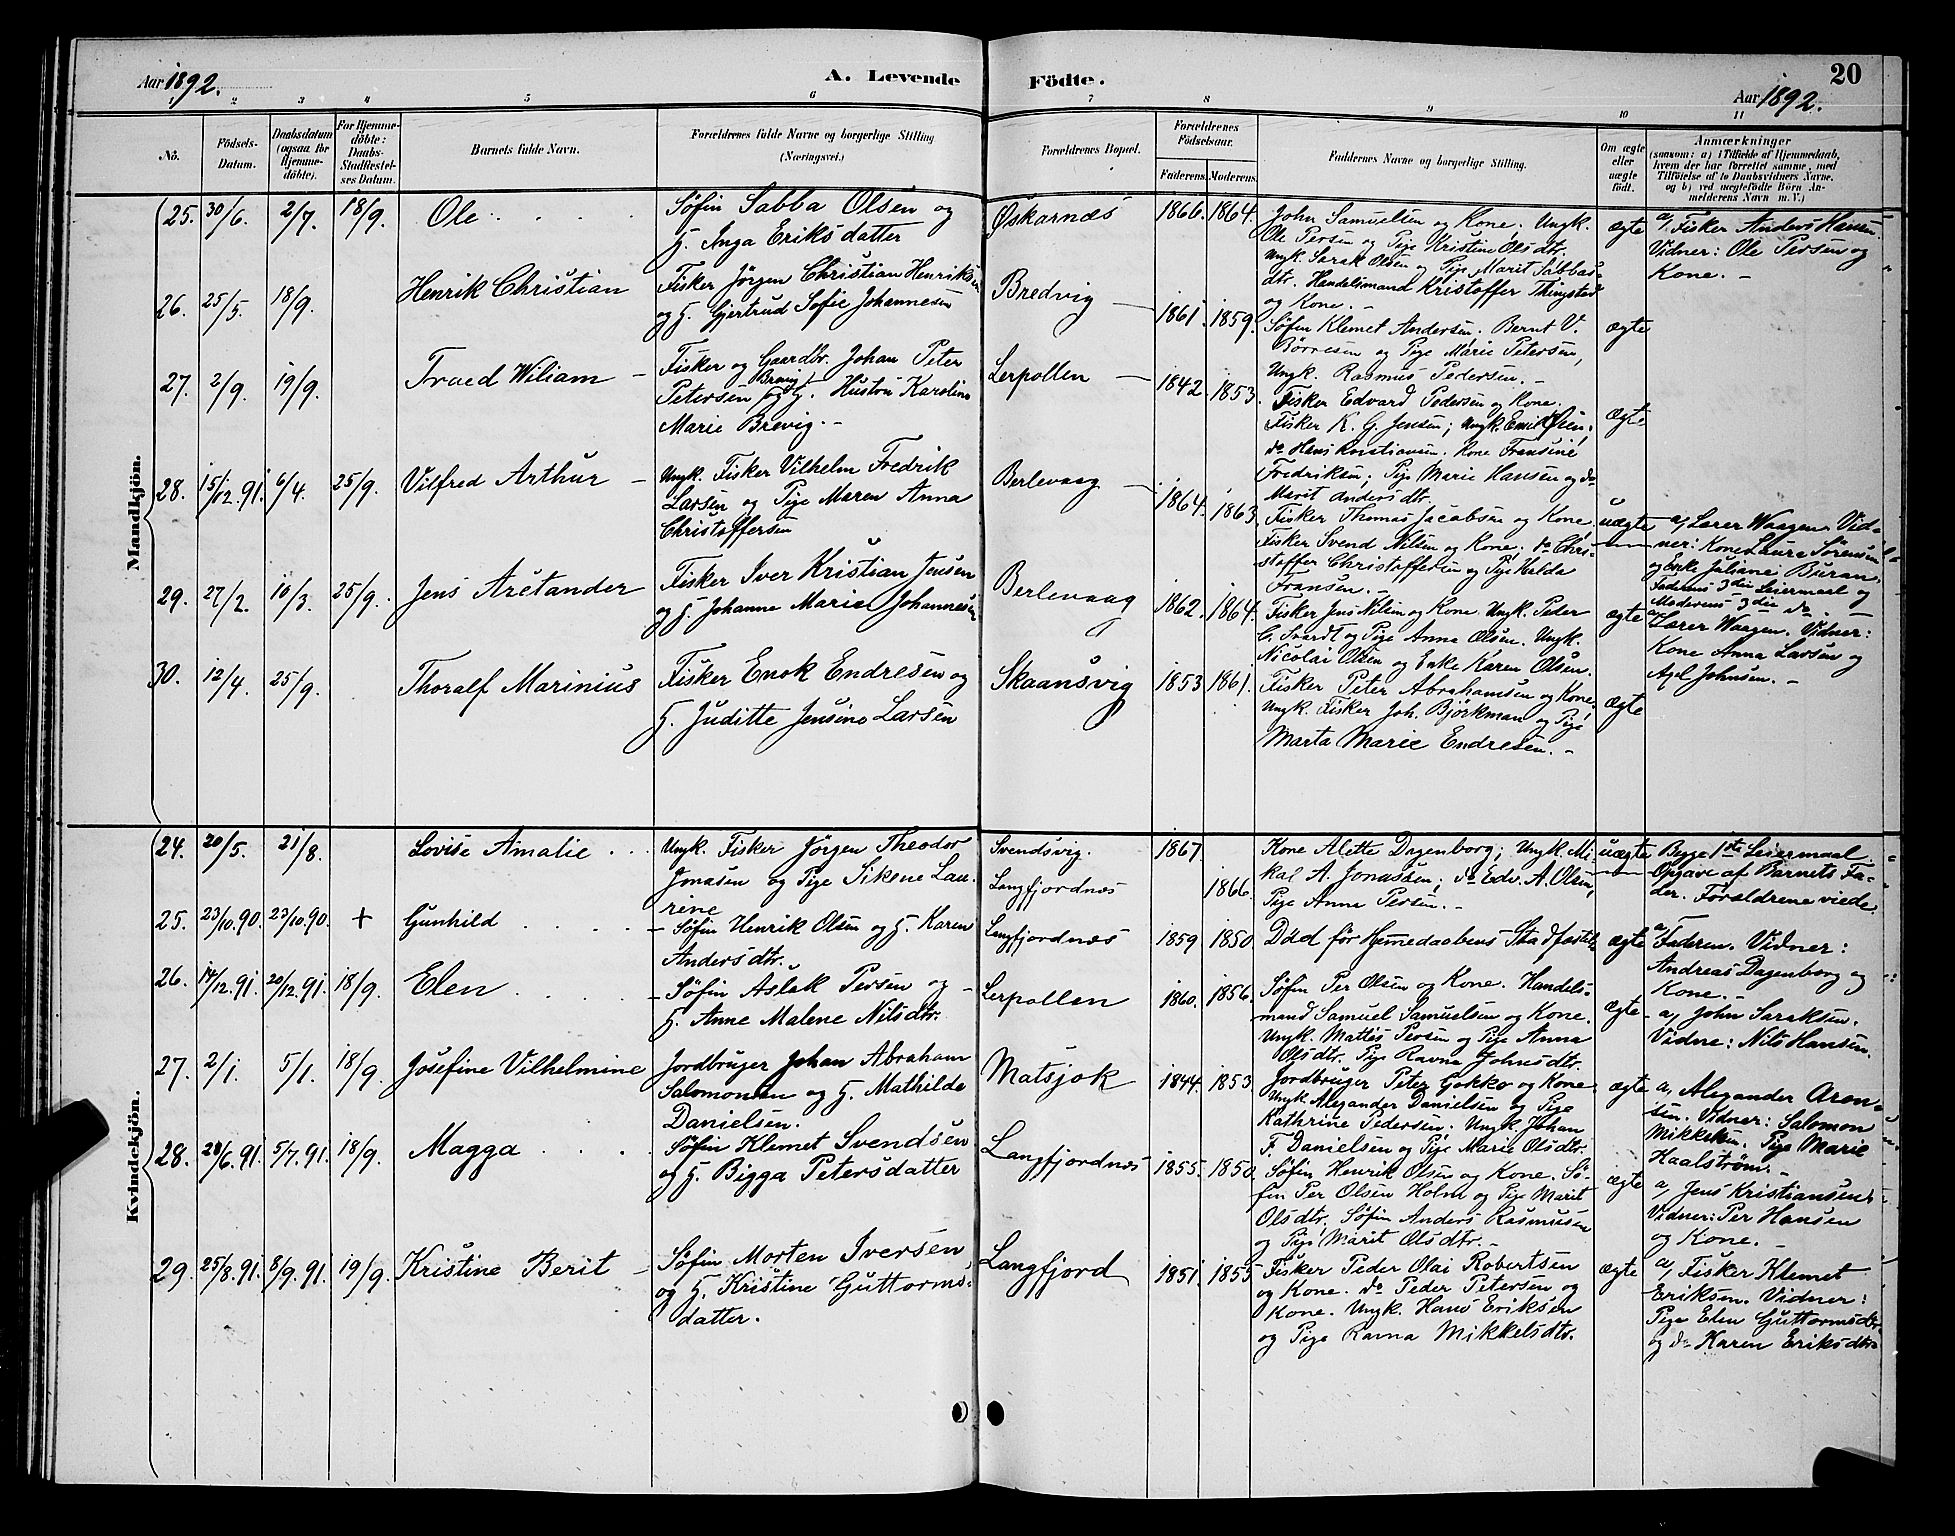 Aar 1892.
A. Levende
Födte.
20
Aar 1892.
1 2 3 4 5 6 7 8 9 10 11
Nö.
Födsels-
Datum.
Daabsdatum
(ogsaa for
Hjemme-
döbte).
For Hjemme-
döbte:
Daabs-
Stadfæstel-
ses Datum.
Barnets fulde Navn.
Forældrenes fulde Navne og borgerlige Stilling
(Næringsvei.)
Forældrenes Bopæl.
Forældrenes
Födselsaar.
Faderens. Moderens.
Faddernes Navne og borgerlige Stilling.
Om ægte
eller
uægte
født.
Anmærkninger
(saasom: a) i Tilfælde af Hjemmedaab,
hvem der har forrettet samme, med
Tilföielse af to Daabsvidners Navne,
og b) ved uægtefödte Börn An-
melderens Navn m. V.)
Mandkjön.
25. 30/6. 2/7. 18/9. Ole
Söfin Sabba Olsen og
H. Inga Eriksdatter
Øskarnæs 1866. 1864.
John Samuelsen og Kone. Ungk.
Ole Persen og Pige Kristine Olsdtr.
Ungk. Sarak Olsen og Pige Marit Sabbas-
dtr. Handelsmand Kristoffer Thingstad
og Kone. -
ægte
a, Fisker Anders Hansen
Vidner: Ole Persen og
Kone. -
26. 25/5. 18/9. Henrik Christian
Fisker Jörgen Christian Henriksen
og H. Gjertrud Sofie Johannesen
Bredvig 1861. 1859.
Söfin Klemet Andersen. Bernt V.
Börresen og Pige Marie Petersen,
Ungk. Rasmus Pedersen. -
ægte
27. 2/9. 19/9. Traed Wiliam -
Fisker og Gaardbr. Johan Peter
Petersen Brevig og H. Hustru Karoline
Marie Brevig. -
Lerpollen 1842. 1853.
Fisker Edvard Pedersen og Kone.
Fisker K. G. Jensen; Ungk. Emil Olsen;
do Hans Kristiansen. Kone Fransine
Fredriksen; Pige Marie Hansen og do
Marit Andersdtr.
ægte
28. 15/12.91. 6/4. 25/9. Vilfred Arthur -
Ungk. Fisker Vilhelm Fredrik
Larsen og Pige Maren Anna
Christoffersen
Berlevaag 1864. 1863.
Fisker Thomas Jacobsen og Kone
Fisker Svend Nilsen og Kone. do Chri-
stoffer Christoffersen og Pige Halda
Fransen. -
uægte
a, Lærer Waagen. Vid-
ner: Kone Laura Sörensen
og Enke Juliane Buran.
Faderens 3die Leiermaal og
Moderens 3die do.
29. 27/2. 10/3. 25/9. Jens Aretander
Fisker Iver Kristian Jensen
og H. Johanne Marie Johannesen
Berlevaag 1862. 1864.
Fisker Jens Nilsen og Kone. Ungk. Peder
C. Svardt og Pige Anna Olsen. Ungk.
Nicolai Olsen og Enke Karen Olsen.
ægte
a, Lærer Waagen. Vidner:
Kone Anna Larsen og
Axel Johnsen. -
30. 12/4. 25/9. Thoralf Marinius
Fisker Enok Endresen og
H. Juditte Jensine Larsen
Skaansvig 1853 1861.
Fisker Peter Abrahamsen og Kone.
Ungk. Fisker Joh. Björkman og Pige
Marta Marie Endresen. -
ægte
Kvindekjön.
24. 20/5. 21/8. Lovise Amalie
Ungk. Fisker Jörgen Theodor
Jonasen og Pige Sikene Lau-
rine
Svendsvig.
Langfjordnæs
1867
1866.
Kone Alette Dagenborg; Ungk. Mi-
kal A. Jonassen; do Edv. A. Olsen,
Pige Anna Persen. -
uægte
Begge 1ste Leiermaal
Opgave af Barnets Fa-
der. Forældrene viede.
25. 23/10.90. 23/10.90. + Gunhild
- Söfin Henrik Olsen og H. Karen
Andersdtr.
Langfjordnæs 1859 1850.
Död för Hjemedaabens Stadfæstel.
ægte
a, Faderen. Vidner:
Andreas Dagenborg og
Kone. -
26. 14/12.91. 20/12.91. 18/9. Elen
- Söfin Aslak Persen og -
H. Anne Malene Nilsdtr.
Lerpollen 1860. 1856.
Söfin Per Olsen og Kone. Handels-
mand Samuel Samuelsen og Kone.
Ungk. Mattis Persen og Pige Anna
Olsdtr. Pige Ravna Johnsdtr.
ægte
a, John Saraksen.
Vidne: Nils Hansen.
27. 2/1. 5/1. 18/9. Josefine Vilhelmine
Jordbruger Johan Abraham
Salomonsen og H. Mathilde
Danielsen.
Matsjok 1844. 1853.
Jordbruger Peter Gokko og Kone
Ungk Alexander Danielsen og Pige
Kathrine Pedersen. Ungk. Johan
F. Danielsen og Pige Marie Olsdtr.
ægte
a, Alexander Aron-
sen. Vidner: Salomon
Mikkelsen. Pige Marie
Haalström. -
28. 28/6.91. 5/7.91. 18/9. Magga
Söfin Klemet Svendsen
og H. Bigga Petersdatter
Langfjordnæs 1855. 1850.
Söfin Henrik Olsen og Kone. Sö-
fin Per Olsen Holm og Pige Marit
Olsdtr. Söfin Anders Rasmusen
og Pige Marit Olsdtr. -
ægte
a, Jens Kristiansen.
Vidner: Per Hansen
og Kone. -
29. 25/8.91. 8/9.91. 19/9. Kristine Berit -
Söfin Morten Iversen
og H. Kristine Guttorms-
datter.
Langfjord 1851. 1855
Fisker Peder Olai Robertsen
og Kone. do Peder Petersen og
Kone. Ungk. Hans Eriksen
og Pige Ravna Mikkelsdtr.
ægte
a, Fisker Klemet
Eriksen. Vidner:
Pige Elen Guttormsdtr.
og do Karen Eriksdtr.